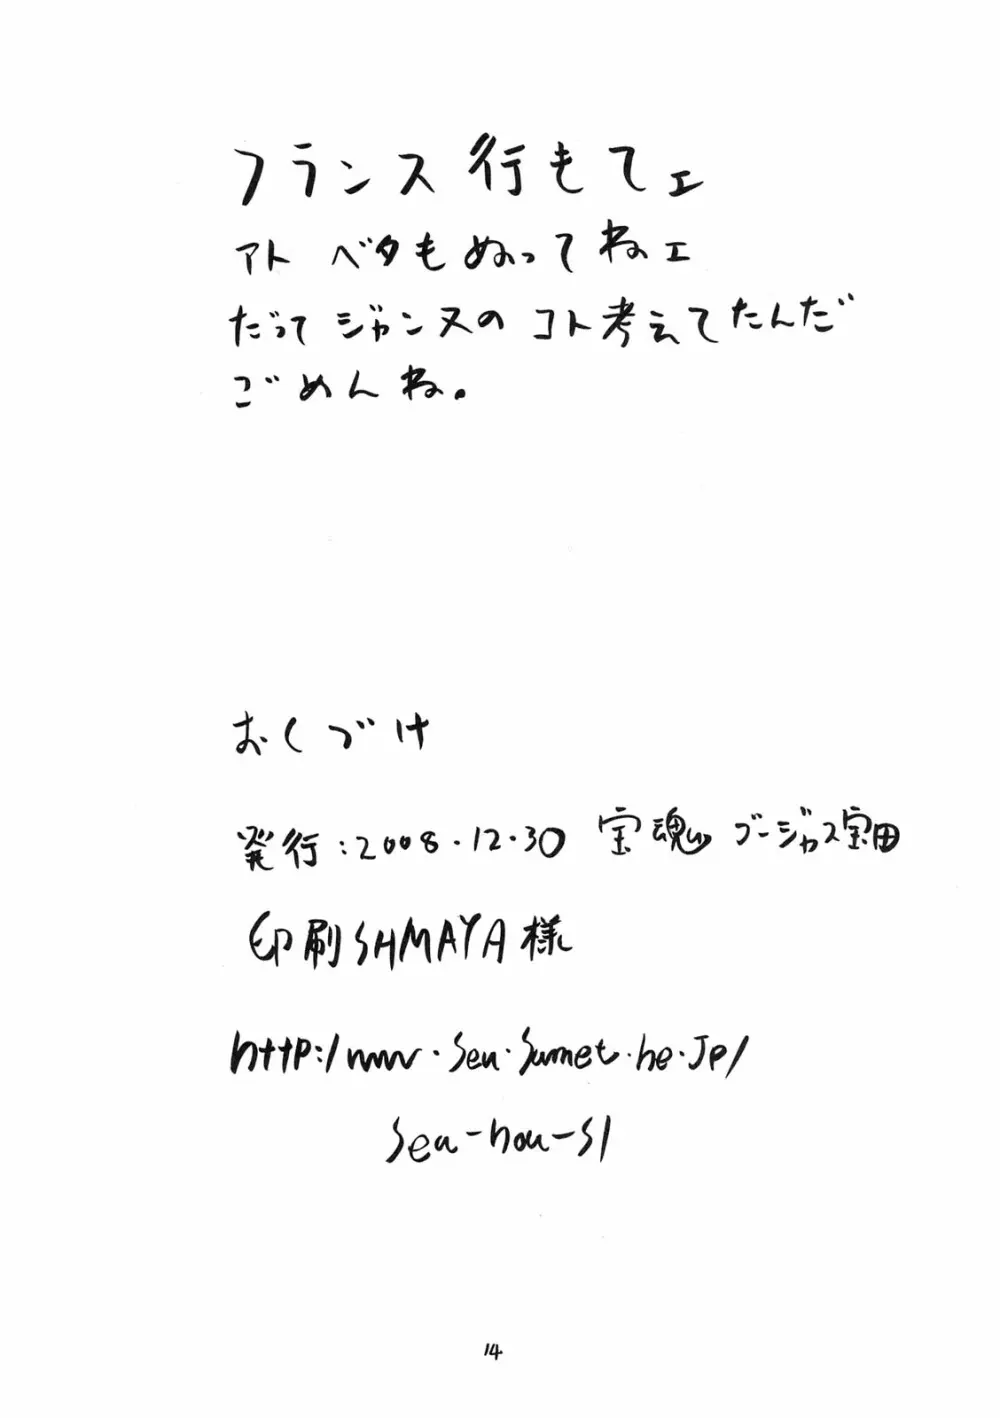 フランス行もてェ
アト ベタもぬってねェ
だって ジャンヌの コト考えてたんだ
ごめんね。
おくづけ
発行:2008.12.30 宝魂 ゴージャス宝田
印刷SHMAYA様
http:/www.sea.sumet.he.Jp/
sea-hou-s/
14